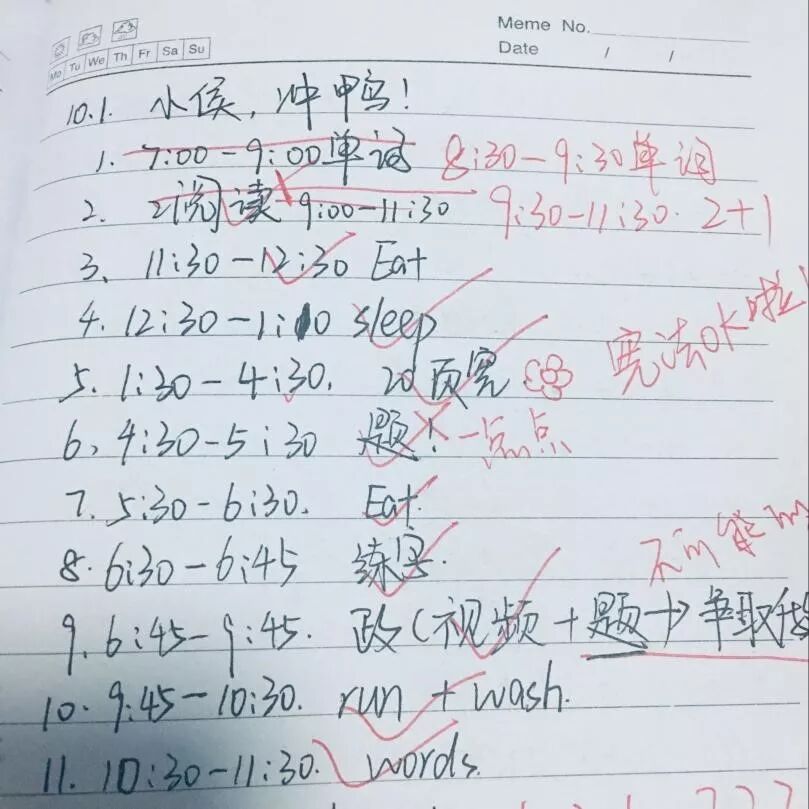 Meme No.
Date / /
Mo Tu We Th Fr Sa Su
10.1. 小侯,冲鸭!
1. 7:00-9:00单词 8:30-9:30单词
2. 2阅读 9:00-11:30 9:30-11:30. 2+1
3、11:30-12:30 Eat
4. 12:30-1:10 sleep
宪法OK啦!
5. 1:30-4:30. 20页宪
6、4:30-5:30 题! 一点点
7. 5:30-6:30. Eat.
8. 6:30-6:45 练字.
不可能
9. 6:45-9:45. 政(视频+题→争取
10. 9:45-10:30. run + wash.
11. 10:30-11:30. words.
???